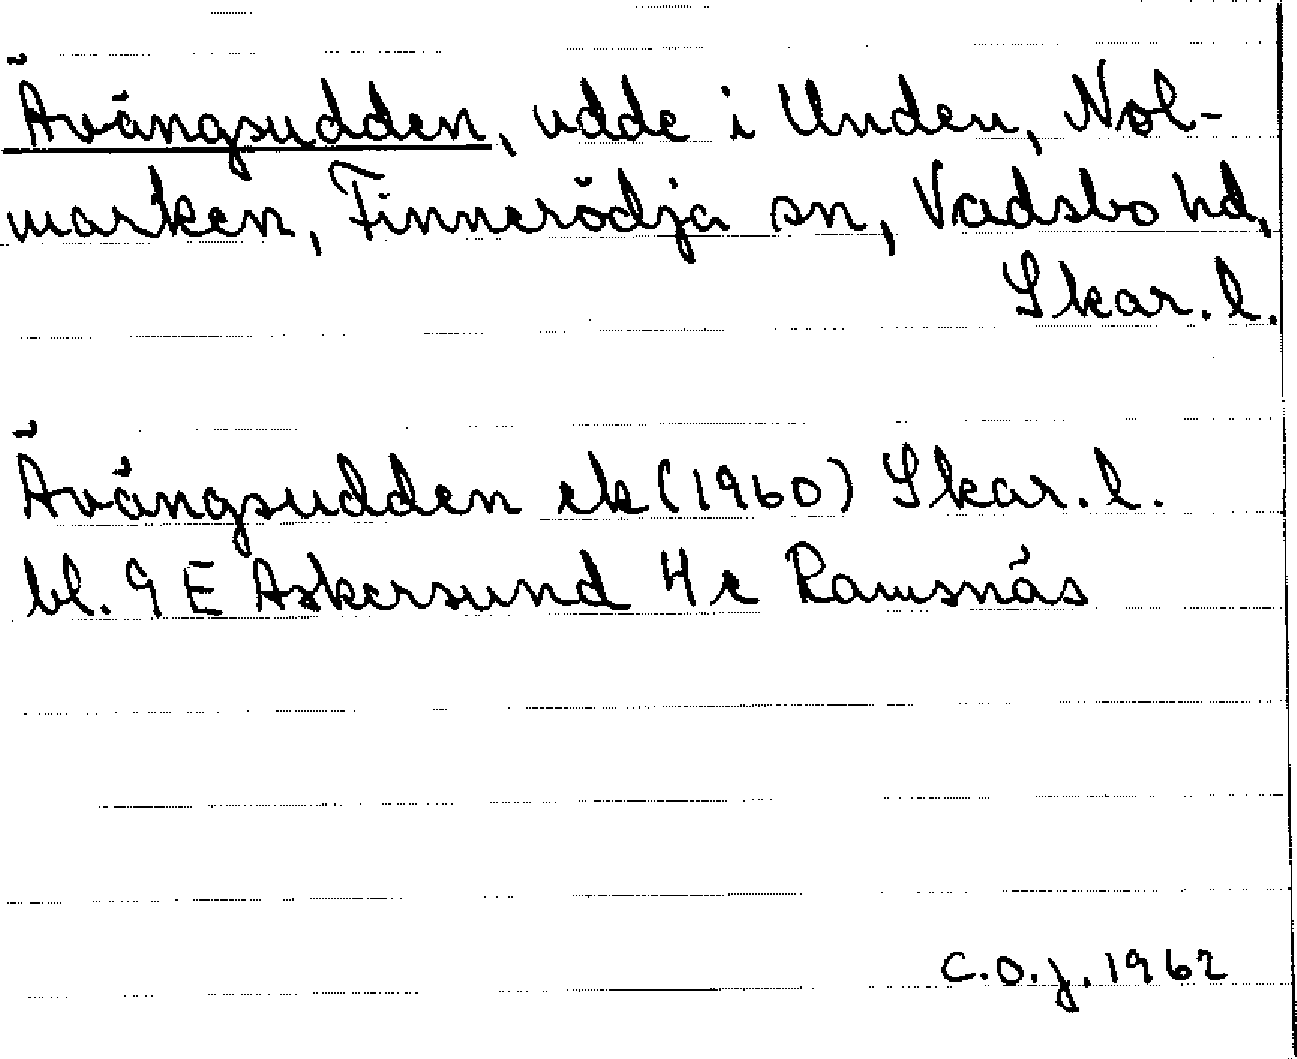 Ävängsudden, udde i Unden, Nol-
marken, Finnerödja sn, Vadsbo hd,
Skar. l.
Ävängsudden ek (1960) Skar. l.
bl. 9 E Askersund 4 e Ramsnäs
C.O.J. 1962